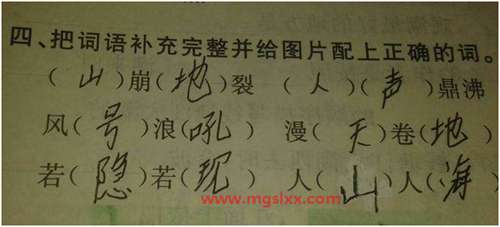 四、把词语补充完整并给图片配上正确的词。
（山）崩（地）裂　（人）（声）鼎沸
风（号）浪（吼）　漫（天）卷（地）
若（隐）若（现）　人（山）人（海）
www.mgslxx.com